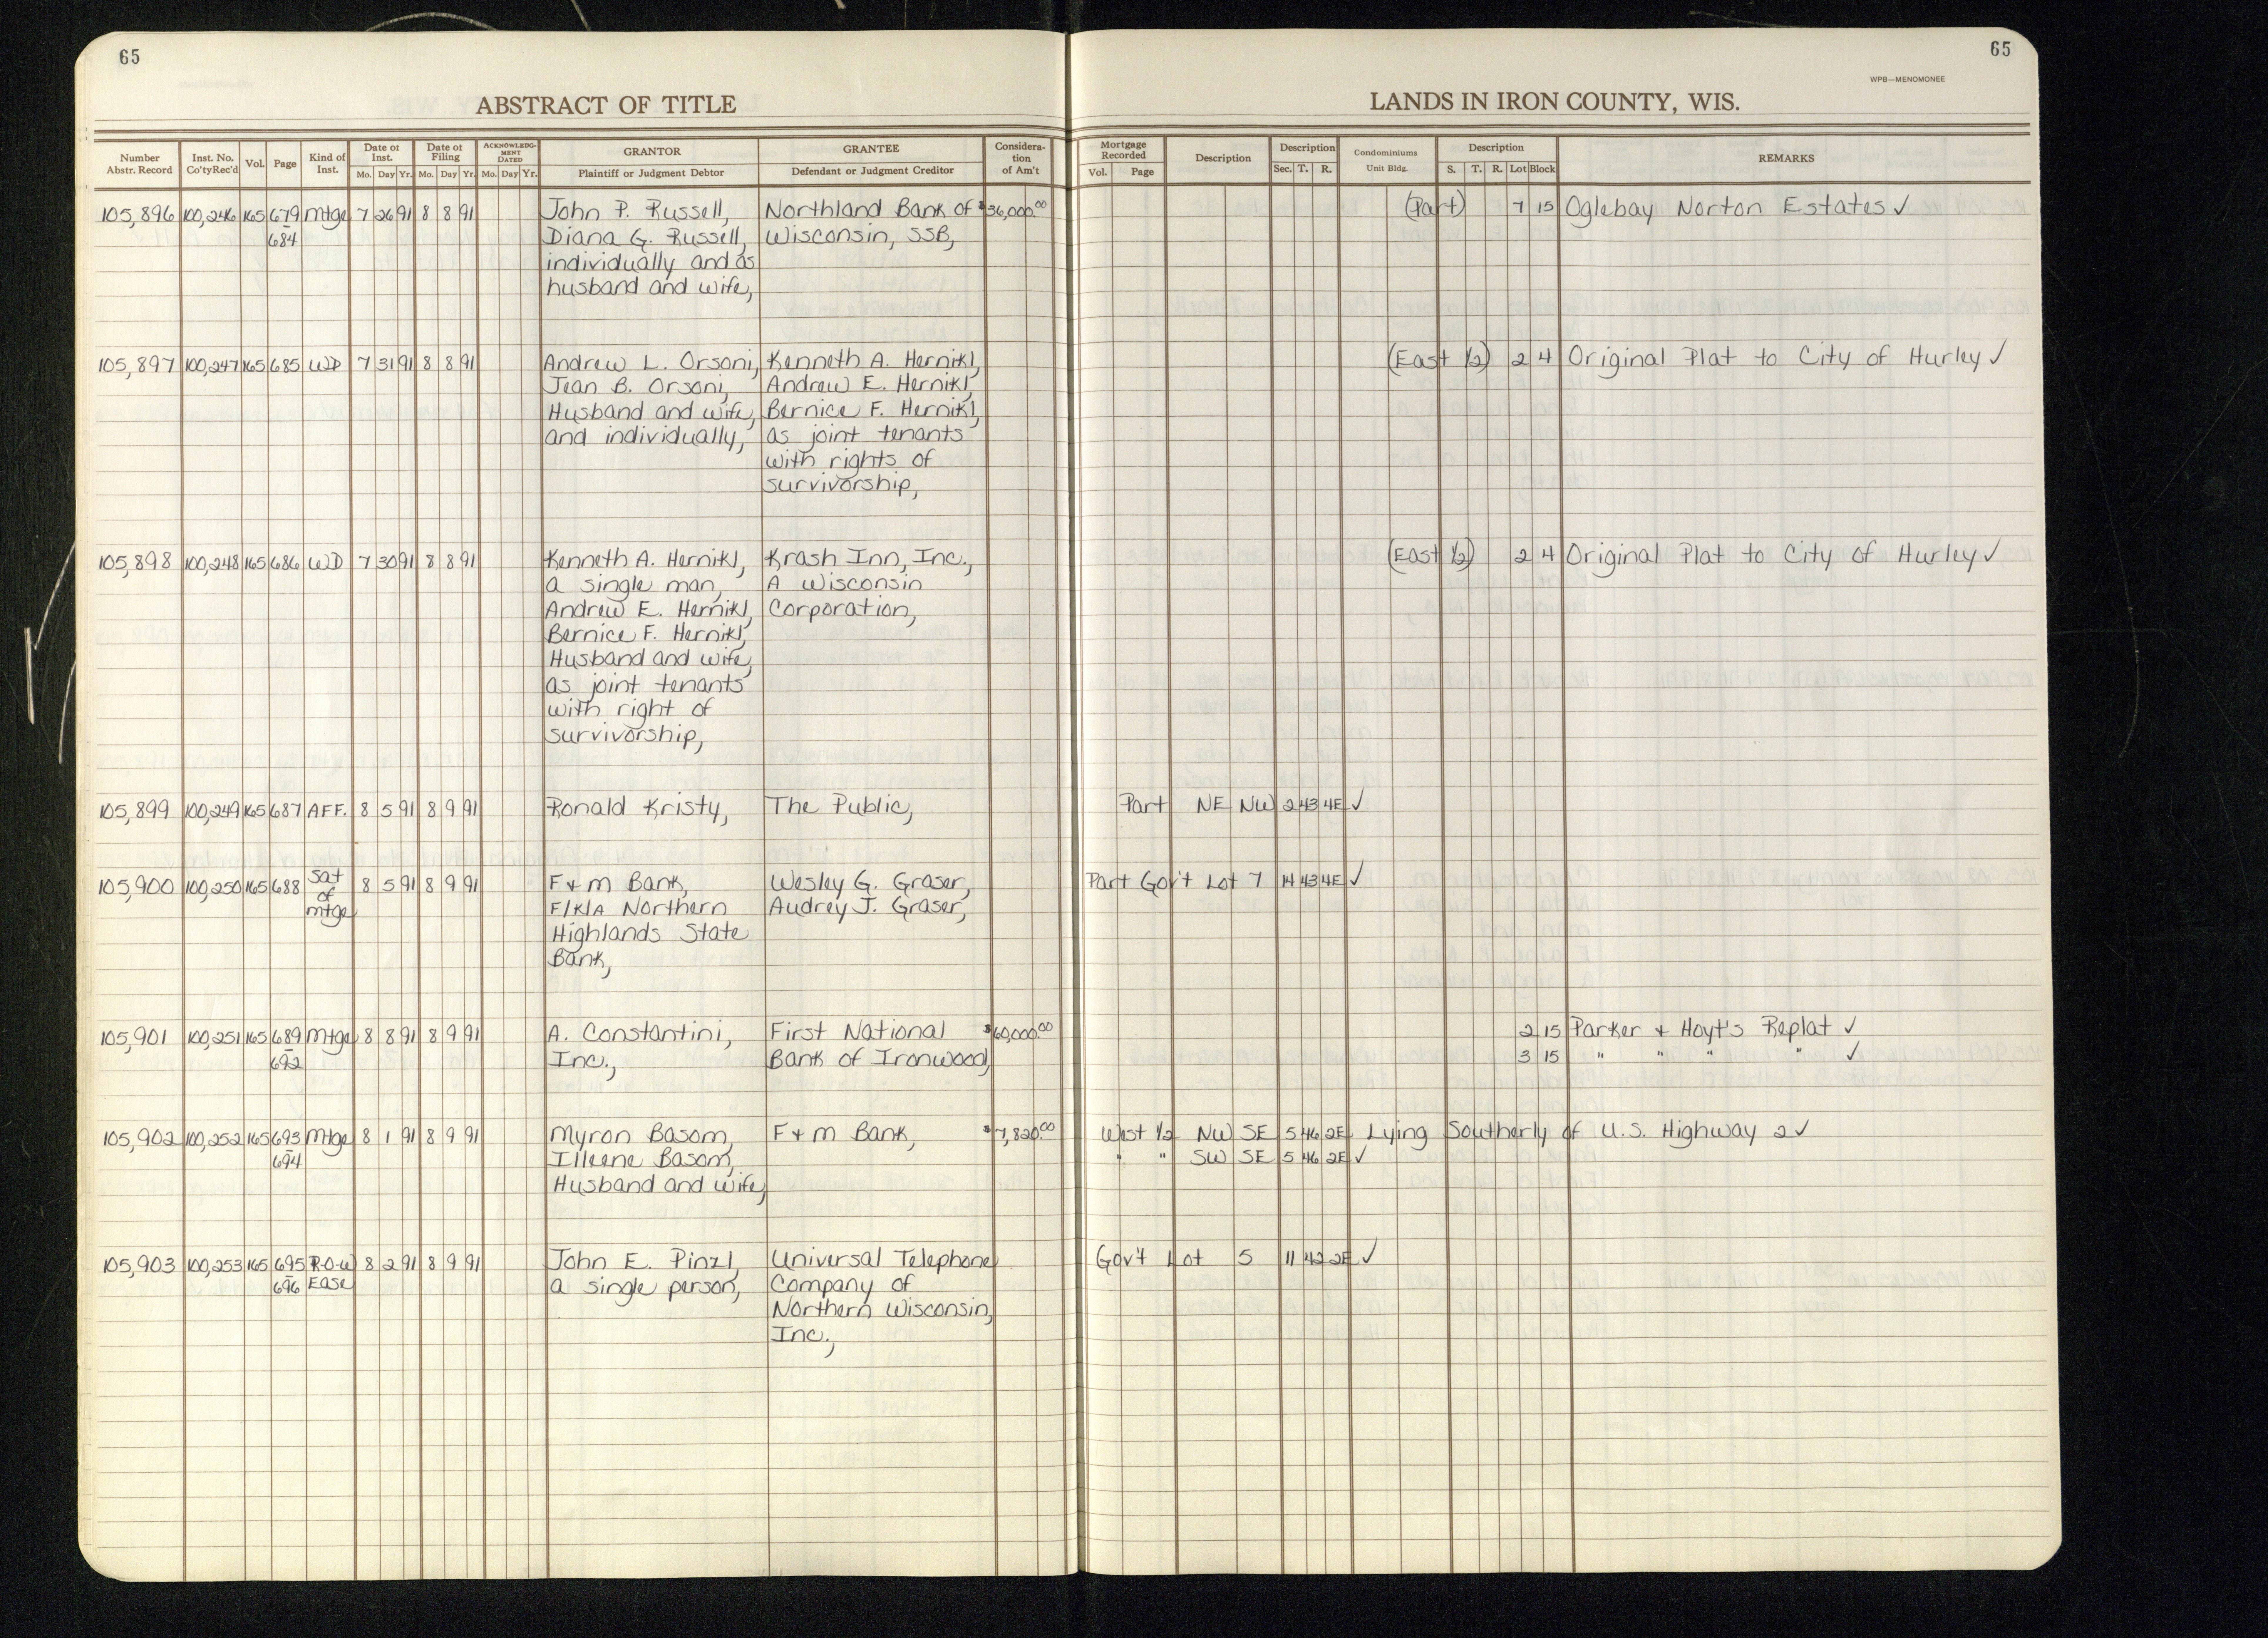 65
65
WPB—MENOMONEE
ABSTRACT OF TITLE
LANDS IN IRON COUNTY, WIS.
Number Abstr. Record | Inst. No. Co'ty Rec'd | Vol. | Page | Kind of Inst. | Date of Inst. Mo. Day Yr. | Date of Filing Mo. Day Yr. | ACKNOWLEDGMENT DATED Mo. Day Yr. | GRANTOR Plaintiff or Judgment Debtor | GRANTEE Defendant or Judgment Creditor | Consideration of Am't | Mortgage Recorded Vol. Page | Description | Description Sec. T. R. | Condominiums Unit Bldg. | Description S. T. R. Lot Block | REMARKS
105,896 100,246 165 679 Mtge 7 26 91 8 8 91 John P. Russell, Northland Bank of $36,000.00 (Part) 7 15 Oglebay Norton Estates ✓
- 684 Diana G. Russell, Wisconsin, SSB,
individually and as
husband and wife,
105,897 100,247 165 685 WD 7 31 91 8 8 91 Andrew L. Orsoni, Kenneth A. Hernikl, (East 1/2) 2 4 Original Plat to City of Hurley ✓
Jean B. Orsoni, Andrew E. Hernikl,
Husband and wife, Bernice F. Hernikl,
and individually, as joint tenants
with rights of
survivorship,
105,898 100,248 165 686 WD 7 30 91 8 8 91 Kenneth A. Hernikl, Krash Inn, Inc., (East 1/2) 2 4 Original Plat to City of Hurley ✓
a single man, A Wisconsin
Andrew E. Hernikl, Corporation,
Bernice F. Hernikl,
Husband and wife,
as joint tenants
with right of
survivorship,
105,899 100,249 165 687 AFF. 8 5 91 8 9 91 Ronald Kristy, The Public, Part NE NW 2 43 4E ✓
105,900 100,250 165 688 Sat of Mtge 8 5 91 8 9 91 F & M Bank, Wesley G. Graser, Part Gov't Lot 7 14 43 4E ✓
F/K/A Northern Audrey J. Graser,
Highlands State
Bank,
105,901 100,251 165 689 Mtge 8 8 91 8 9 91 A. Constantini, First National $60,000.00 2 15 Parker & Hoyt's Replat ✓
- 692 Inc., Bank of Ironwood, 3 15 " " " " ✓
105,902 100,252 165 693 Mtge 8 1 91 8 9 91 Myron Basom, F & M Bank, $7,820.00 West 1/2 NW SE 5 46 2E Lying Southerly of U.S. Highway 2 ✓
- 694 Illeene Basom, " " SW SE 5 46 2E ✓
Husband and wife,
105,903 100,253 165 695 R-O-W 8 2 91 8 9 91 John E. Pinzl, Universal Telephone Gov't Lot 5 11 42 2E ✓
- 696 Ease a single person, Company of
Northern Wisconsin,
Inc.,